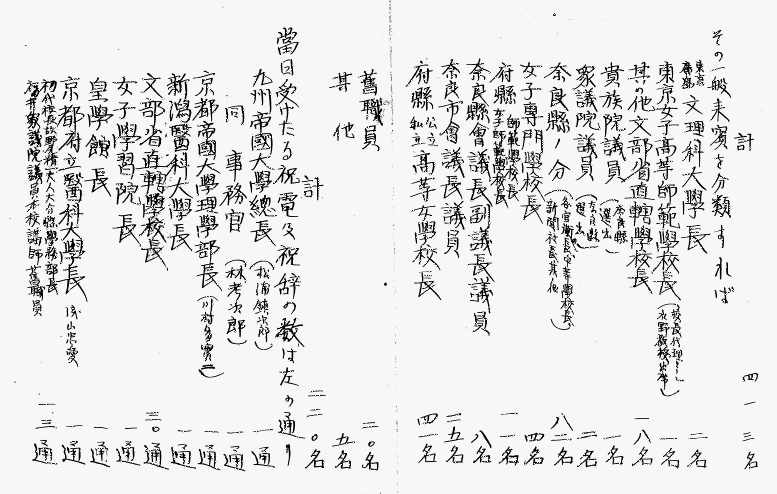 計 四一三名
その一般来賓を分類すれば
東京廣島文理科大學長 二名
東京女子高等師範學校長(校長代理として水野教授出席) 一名
其の他文部省直轄學校長 一八名
貴族院議員(奈良縣選出) 一名
衆議院議員(奈良縣選出) 二名
奈良縣ノ分(各官衙長、中等學校長、新聞社長其ノ他) 八二名
女子專門學校長 四名
府縣師範學校長女子師範學校長 一一名
奈良縣會議長副議長議員 八名
奈良市會議長議員 二五名
府縣公立私立高等女學校長 四一名
舊職員 二〇名
其他 五名
計 二二〇名
當日受けたる祝電及祝辞の数は左の通り
九州帝國大學總長(松浦鎮次郎) 一通
同 事務官(林孝次郎) 一通
京都帝國大學理學部長(川村多實二) 一通
新潟醫科大學長 一通
文部省直轄學校長 三〇通
女子學習院長 一通
皇學館長 一通
京都府立醫科大學長 浅山忠愛 一通
初代校長故野尻精一夫人大分縣學務部長
福井衆議院議員本校講師舊職員 一三通